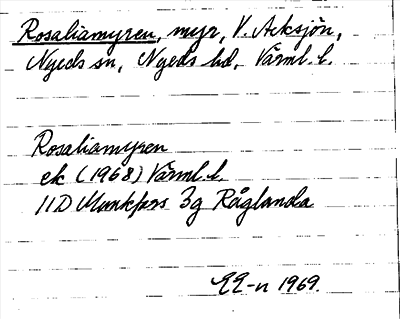 Rosaliamyren, myr, V. Acksjön,
Nyeds sn, Nyeds hd, Värml. l.
Rosaliamyren
ek (1968) Värml. l.
11D Munkfors 3g Råglanda
EE-n 1969.